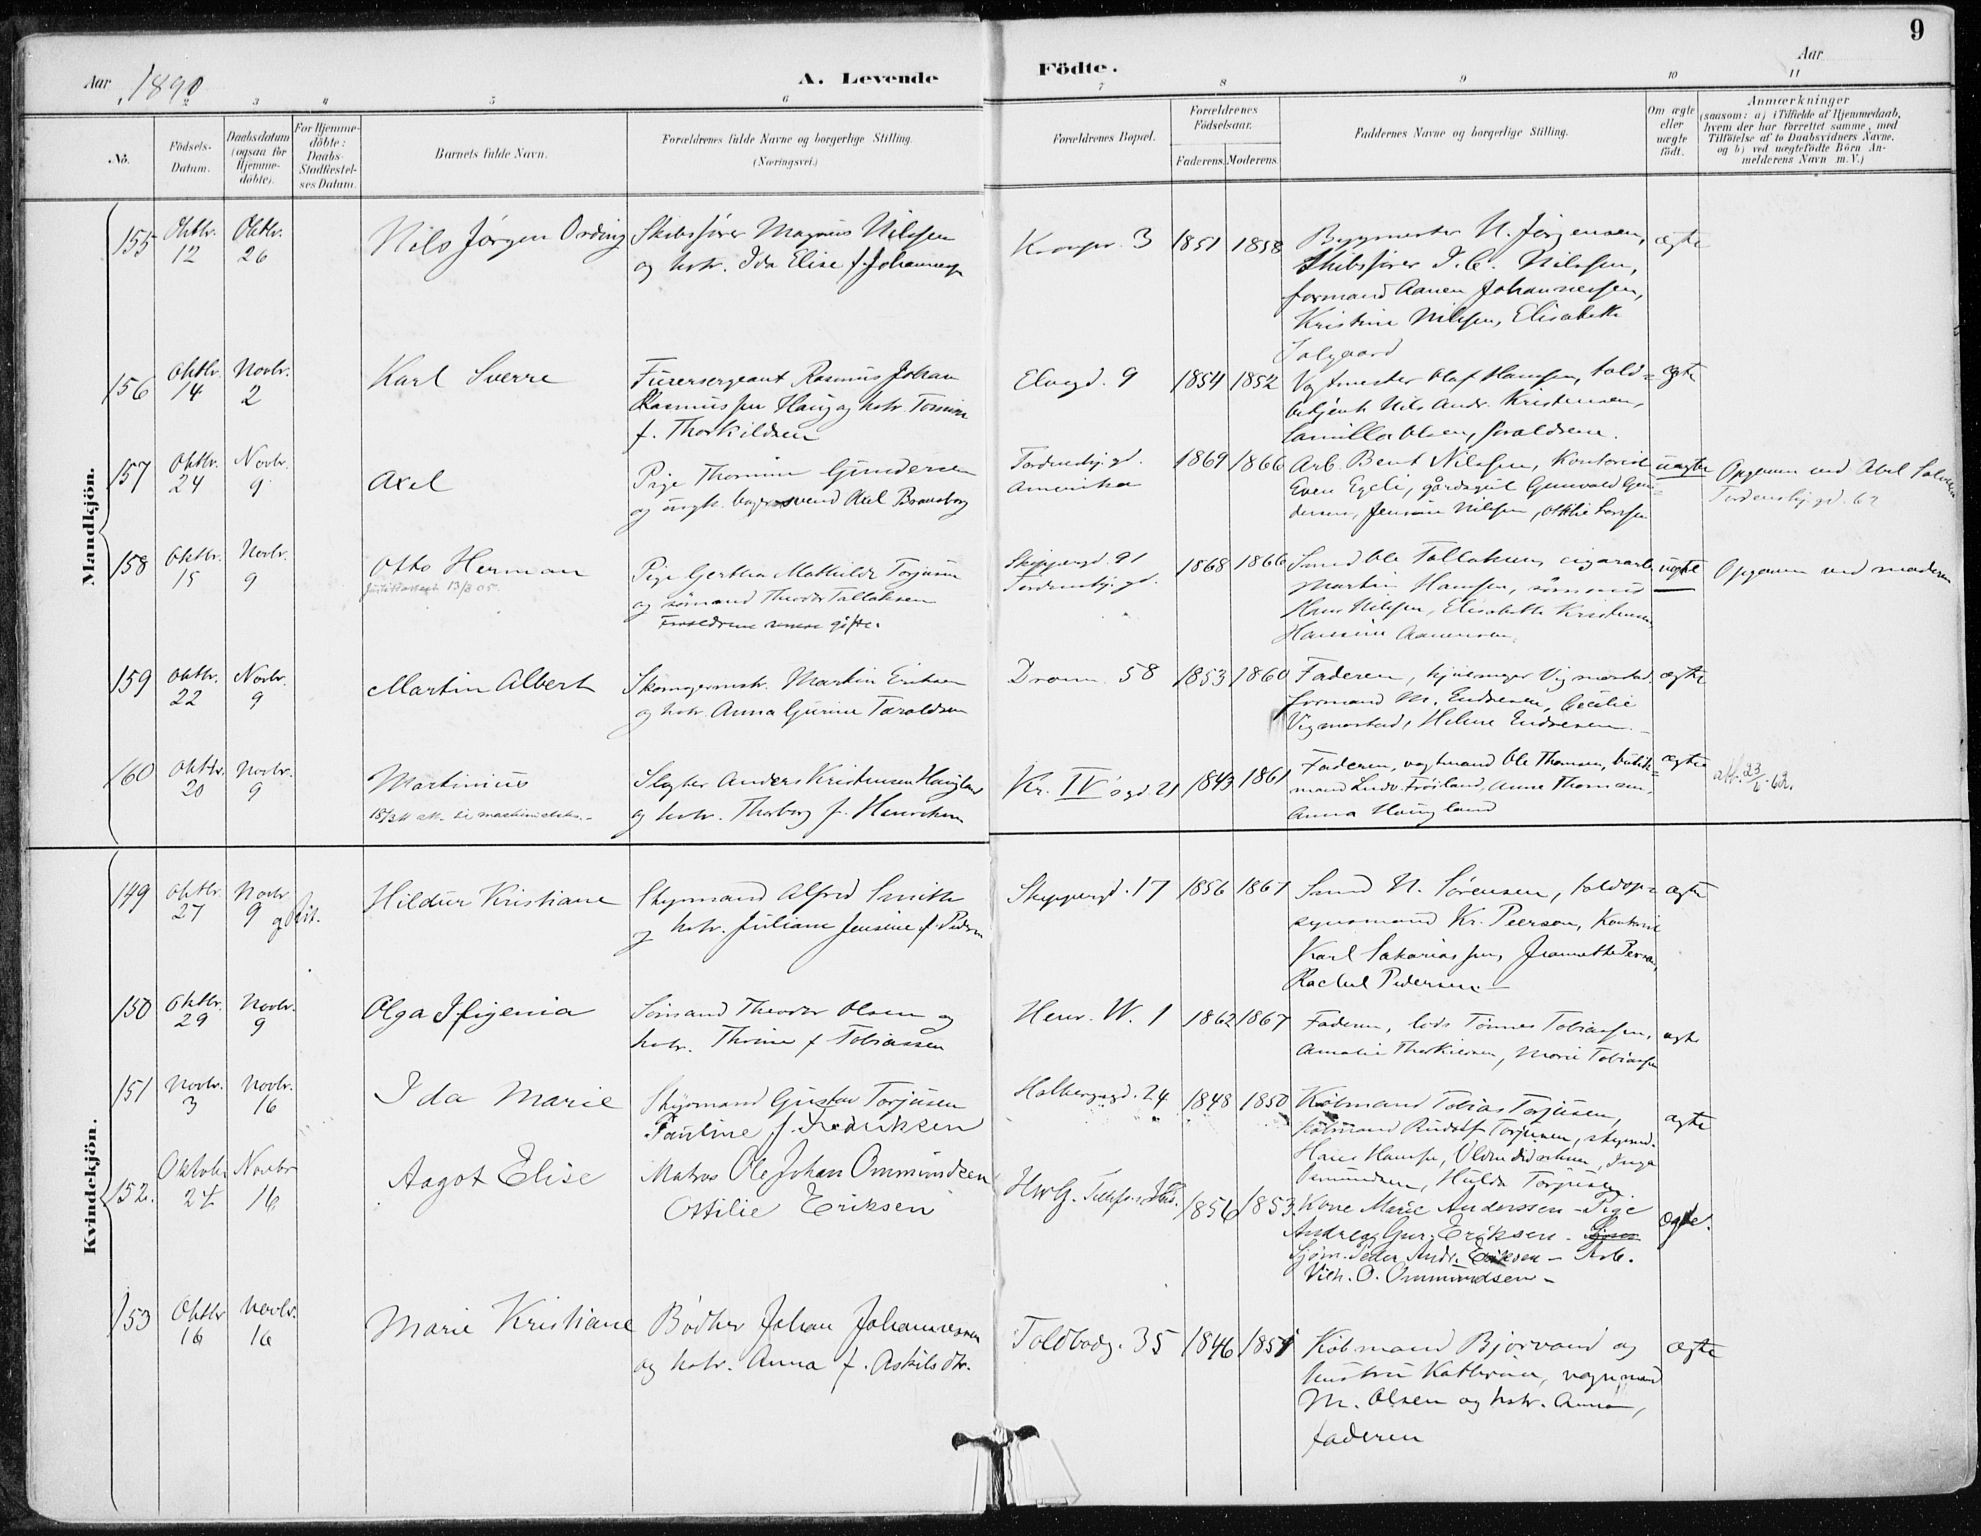 9
Aar 1890
A. Levende Födte.
Aar
2 3 4 5 6 7 8 9 10 11
No.
Födsels-Datum.
Daabsdatum (ogsaa for Hjemme-döbte).
For Hjemme-döbte: Daabs-Stadfæstel-ses Datum.
Barnets fulde Navn.
Forældrenes fulde Navne og borgerlige Stilling.
(Næringsvei.)
Forældrenes Bopæl.
Forældrenes Födselsaar.
Faderens. Moderens.
Faddernes Navne og borgerlige Stilling.
Om ægte eller uægte födt.
Anmærkninger
(saasom: a) i Tilfælde af Hjemmedaab,
hvem der har forrettet samme, med
Tilföielse af to Daabsvidners Navne.
og b) ved uægtefödte Börn An-
melderens Navn m. V.)
Mandkjön.
155 Oktbr. 12 Oktbr. 26 Nils Jørgen Ording
Skibsfører Magnus Nilssen
og hstr. Ida Elise f. Johannesen
Kronpr. 3 1851 1858
Byggmester N. Jørgensen,
Skibsfører J. C. Nilssen,
formand Aanen Johannessen,
Kristine Nilssen, Elisabeth
Salgaard
ægte
156 Oktbr. 14 Novbr. 2 Karl Sverre
Furersergeant Rasmus Johan
Rasmussen Haug og hstr. Tomine
f. Thorkildsen
Elvegd. 9 1854 1852
Olaf Hansen, told-
betjent Nils Andr. Kristensen,
Camilla Olsen,
ægte
157 Oktbr. 24 Novbr. 9 Axel
Pige Thomine Gundersen
og ungk. Axel Bransborg
Tordenskj.gd.
Amerika
1869 1866
Arb. Bent Nilssen, Kontorist
Even Egeli, gårdsgut Gunvald Gun-
dersen, Jensine Nilssen, Othilie
uægte
Opgaven ved Abel
Tordenskj.gd. 62
158 Oktbr. 15 Novbr. 9 Otto Herman
13/3 05.
Pige Gertha Mathilde Torjusen
og sømand Theodor Tallaksen
Forældrene senere gifte.
Skippergd. 91
Tordenskj.gd.
1868 1866
Sømd Ole Tallaksen, cigararb.
Martin Hansen,
Hans Nilssen, Elisabeth Kristensen,
Hansine Aanensen.
uægte
Opgaven ved moderen
159 Oktbr. 22 Novbr. 9 Martin Albert
Skomagermstr. Martin Eriksen
og hstr. Anna Gurine Taraldsen
Dronn. 58 1853 1860
Faderen, Vigmostad,
formand M. Endresen, Cecilie
Vigmostad, Helene Endresen.
ægte
160 Oktbr. 20 Novbr. 9 Martinius
Slagter Anders Kristensen Haugland
og hstr. Thorborg f. Henriksen
Kr. IV's gd. 21 1843 1861
Faderen, vagtmand Ole Thomsen,
mand Ludv. Frøiland, Anne Thomsen,
Anna Haugland
ægte
Kvindekjön.
149 Oktbr. 27 Novbr 9 Hildur Kristiane
Skyvmand Alfred Smith
og hstr. Juliane Jensine f. Pedersen
Skippergd. 17 1856 1867
Sømd N. Sørensen, toldop-
synsmand Kr. Peerson, Kontorist
Karl Sakariassen, Jeanette Person,
Rachel Pedersen
ægte
150 Oktbr. 29 Novbr. 9 Olga Ifigenia
Sømand Theodor Olsen og
hstr. Thrine f. Tobiassen
Henr. W. 1 1862 1867
Faderen, lods Tønnes Tobiassen,
Amalie Thorkildsen, Marie Tobiassen
ægte
151 Novbr. 3 Novbr. 16 Ida Marie
Skyvmand Gustav Torjusen
Pauline f. Fredriksen
Holbergsgd. 24 1848 1850
Købmand Tobias Torjusen,
Købmand Rudolf Torjusen, skyvmd.
Hans Hansen, Inga
Hulda Torjusen
ægte
152. Oktobr. 24 Novbr 16 Aagot Elise
Matros Ole Johan Ommundsen
Ottilie Eriksen
1856 1853.
Kone Marie Anderssen - Pige
Andrea Gur. Eriksen.
Sjøm. Peder Andr. Eriksen - Arb.
Vilh. O. Ommundsen -
ægte.
153 Oktbr 16 Novbr. 16 Marie Kristiane
Bødker Johan Johannessen
og hstr. Anna f. Askilsdtr.
Toldbodg. 35 1846 1851
Købmand Bjorvand og
hustru Kathrine, vognmand
M. Olsen og hstr. Anna,
faderen
ægte